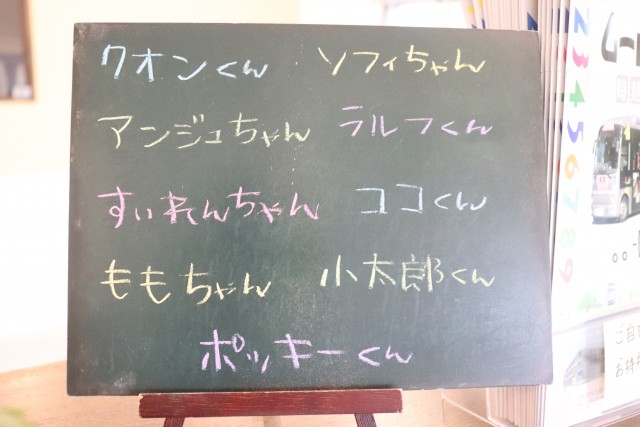 クオンくん ソフィちゃん
アンジュちゃん ラルフくん
すいれんちゃん ココくん
ももちゃん 小太郎くん
ポッキーくん
2
3
4
5
6
7
8
9
ご自
お持